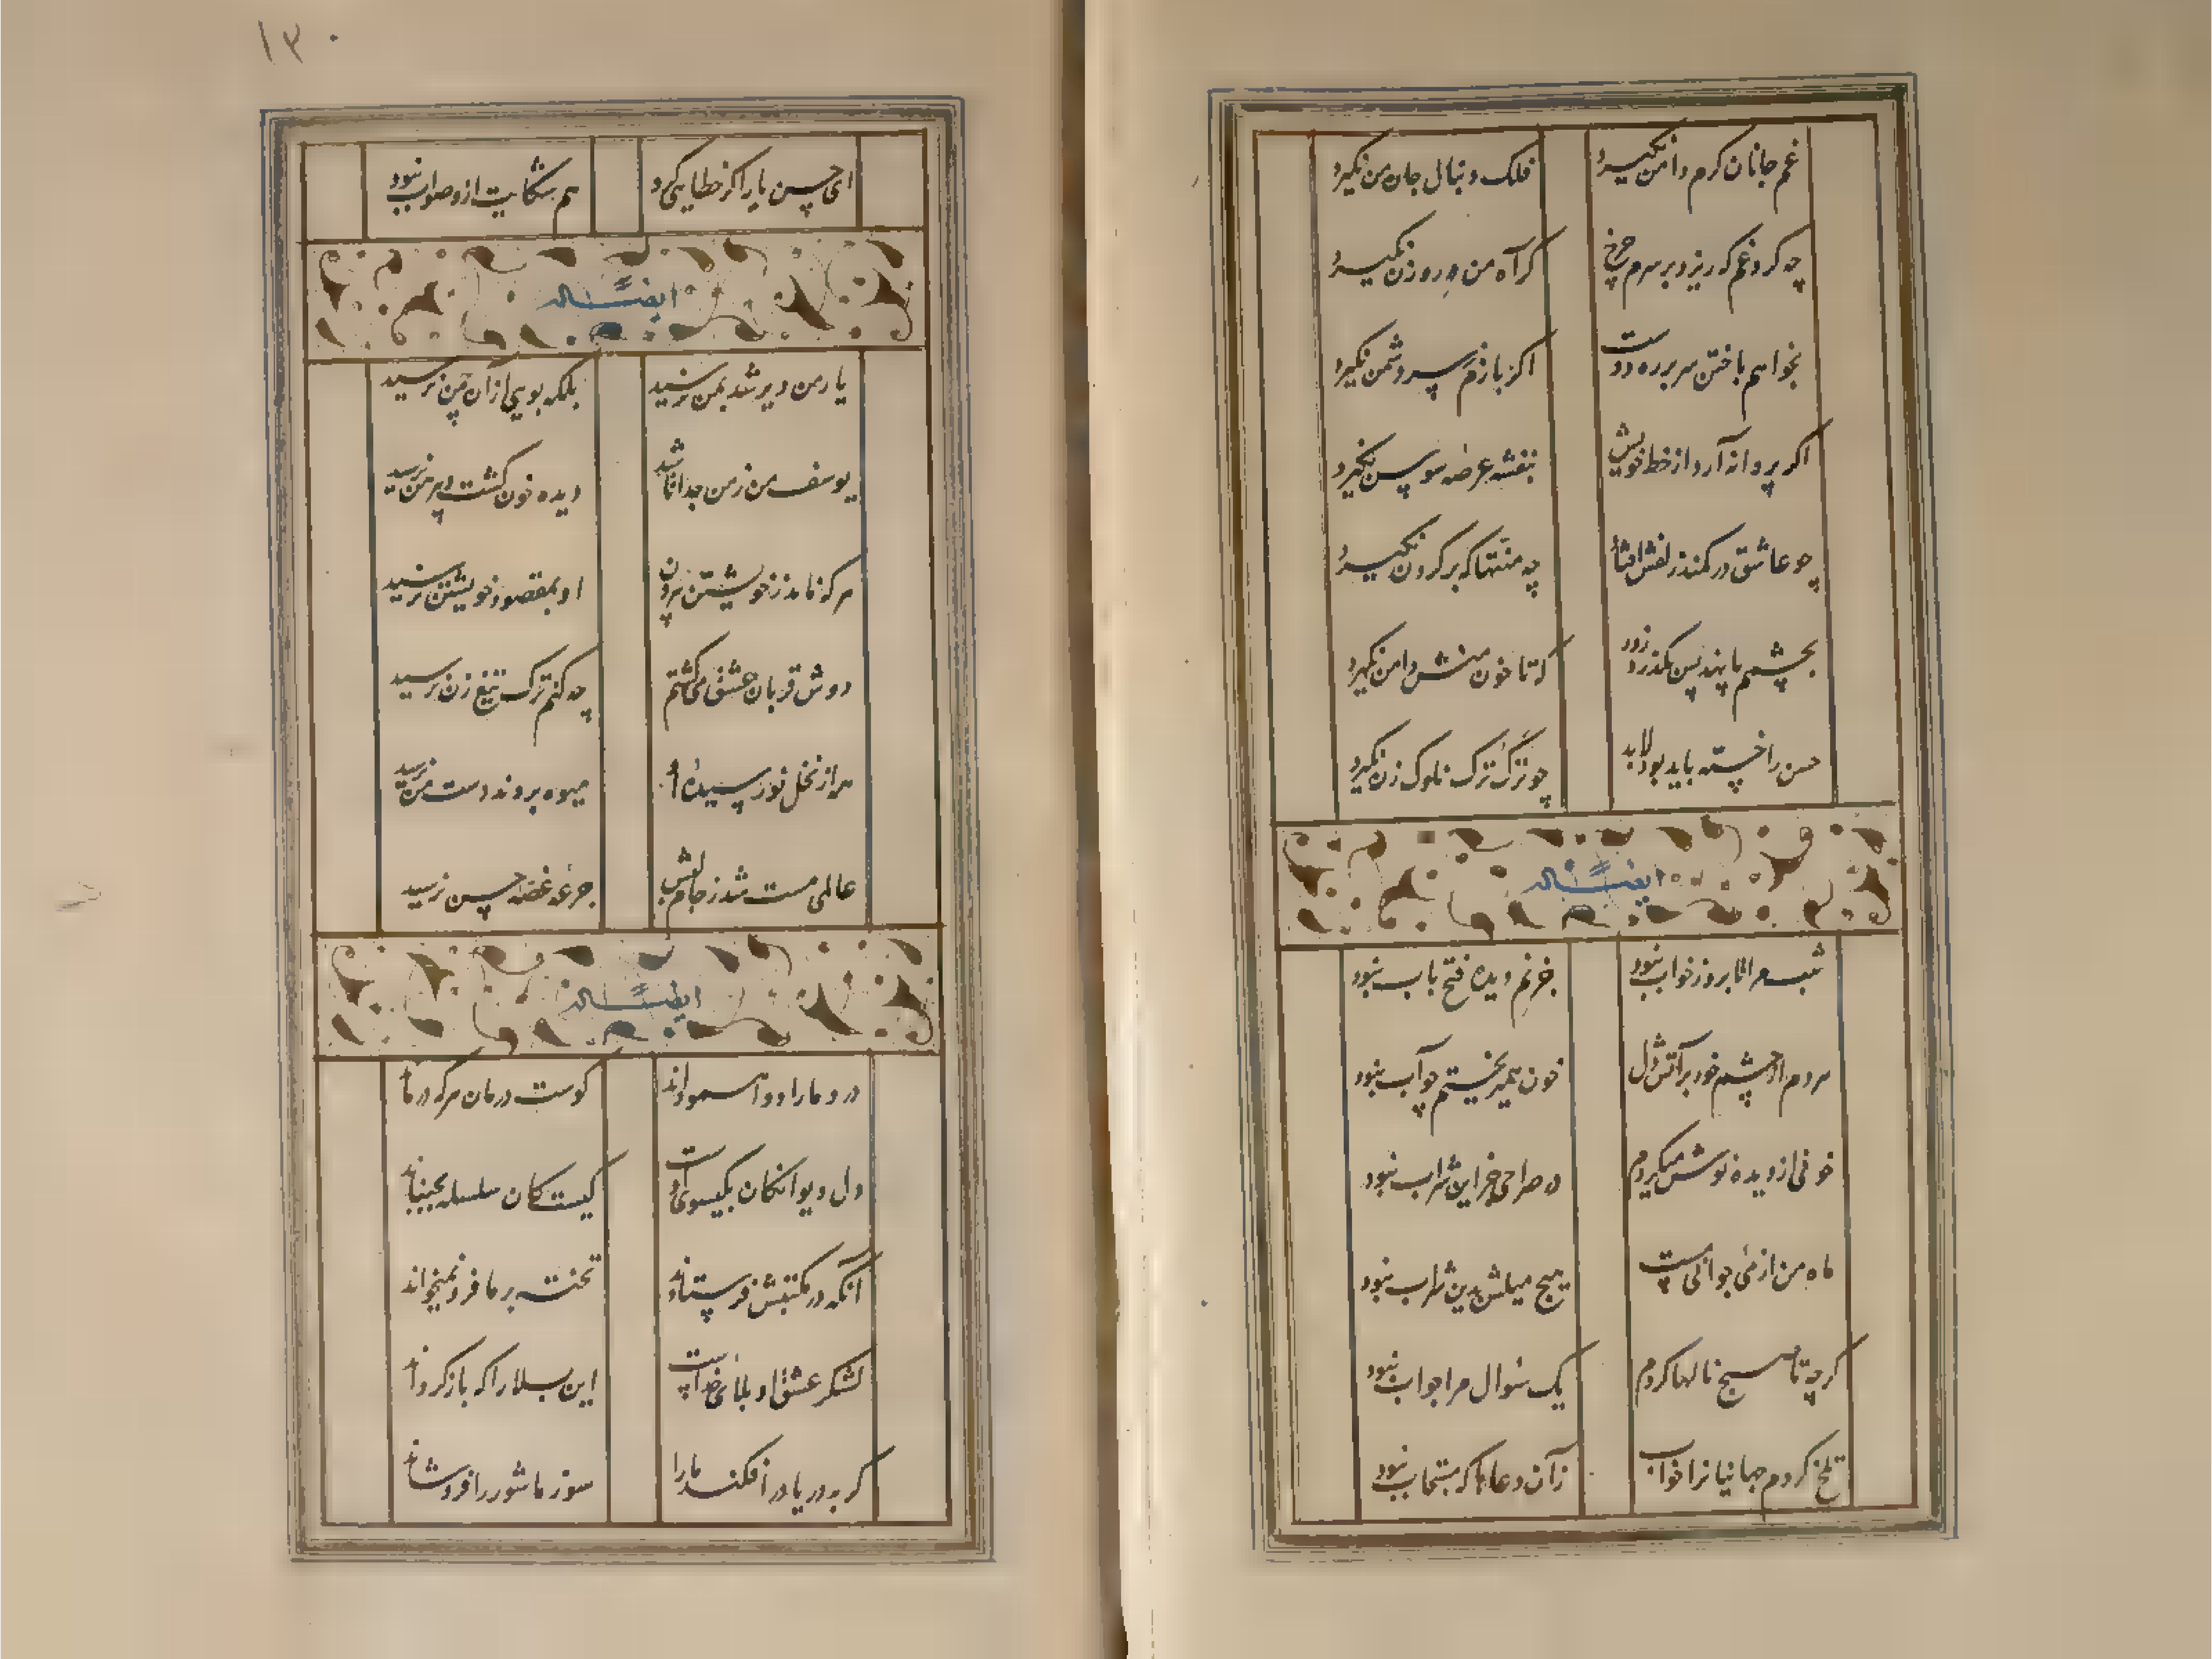 غم جانان کرم دامن نکیرد
فلک دنبال جان من نکیرد
چه کرد غم که ریزد بر سرم چرخ
کر آه من در روزن نکیرد
بخواهم باختن سر بر ره دوست
اکر بازم سر دشمن نکیرد
اکر پروانه آرد از خط خویش
بنفشه عرضه سوسن نکیرد
چو عاشق در کمند زلفش افتاد
چه منتها که بر کردن نکیرد
بچشم ما پسین مکذرد زود
که تا خون منش دامن نکیرد
حسن را خسته باید بود لابد
چو ترک ترک ناوک زن نکیرد
ایضاً له
شب مرا تا بروز خواب نبود
جز نم دیده فتح باب نبود
مردم از چشم خود بر آتش دل
خون همیریختم چو آب نبود
خونی از دیده نوش میکردم
در صراحی جز این شراب نبود
ماه من از می جوانی مست
هیچ میلش بدین شراب نبود
کرچه تا صبح نالها کردم
یک سوال مرا جواب نبود
تلخ کردم جهانیانرا خواب
زآن دعاها که مستجاب نبود
۱۳۰
ای حسن یار اکر خطایی کرد
هم شکایت ازو صواب نبود
ایضاً له
یار من دیر شد بمن نرسید
بلکه بویی از آن چمن نرسید
یوسف من ز من جدا تا شد
دیده خون کشت و پیرهن نرسید
هر که نامد ز خویشتن بیرون
او بمقصود خویشتن نرسید
دوش قربان عشق می کشتم
چه کنم ترک تیغ زن نرسید
هر از نخل نو رسیده او
میوه بردند دست من نرسید
عالمی مست شد ز جام لبش
جرعه غصه حسن نرسید
ایضاً له
درد ما را دوا همو داند
کوست درمان هر که درماند
دل دیوانکان بکیسوی اوست
کیست کان سلسله بجنباند
آنکه در مکتبش فرستادند
تخته بر ما فرو نمیخواند
لشکر عشق او بلای خداست
این بلا را که باز کرداند
کر به دریا در افکند ما را
سوز ما شور را فرو شاند